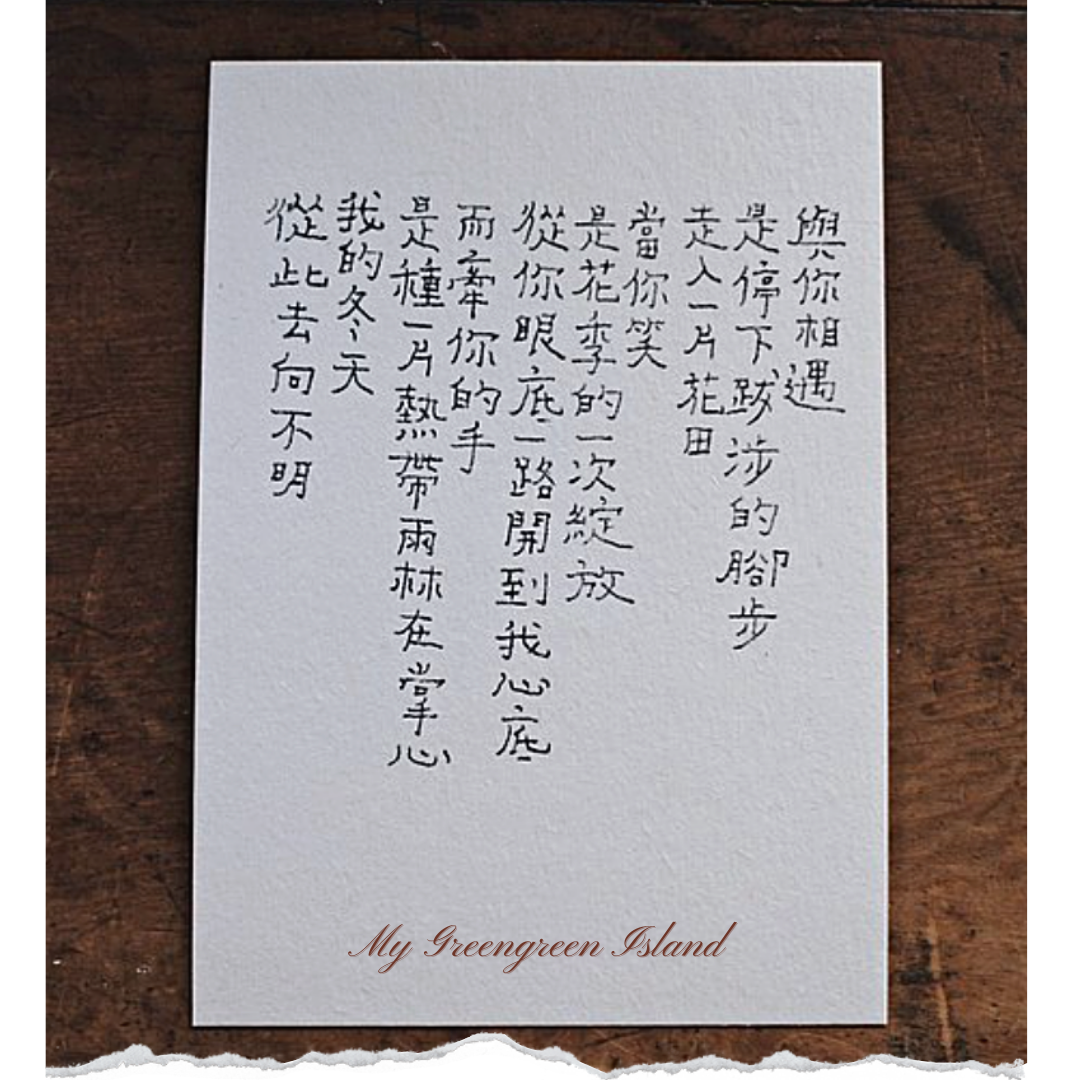 與你相遇
是停下跋涉的腳步
走入一片花田
當你笑
是花季的一次綻放
從你眼底一路開到我心底
而牽你的手
是種一片熱帶雨林在掌心
我的冬天
從此去向不明
My Greengreen Island